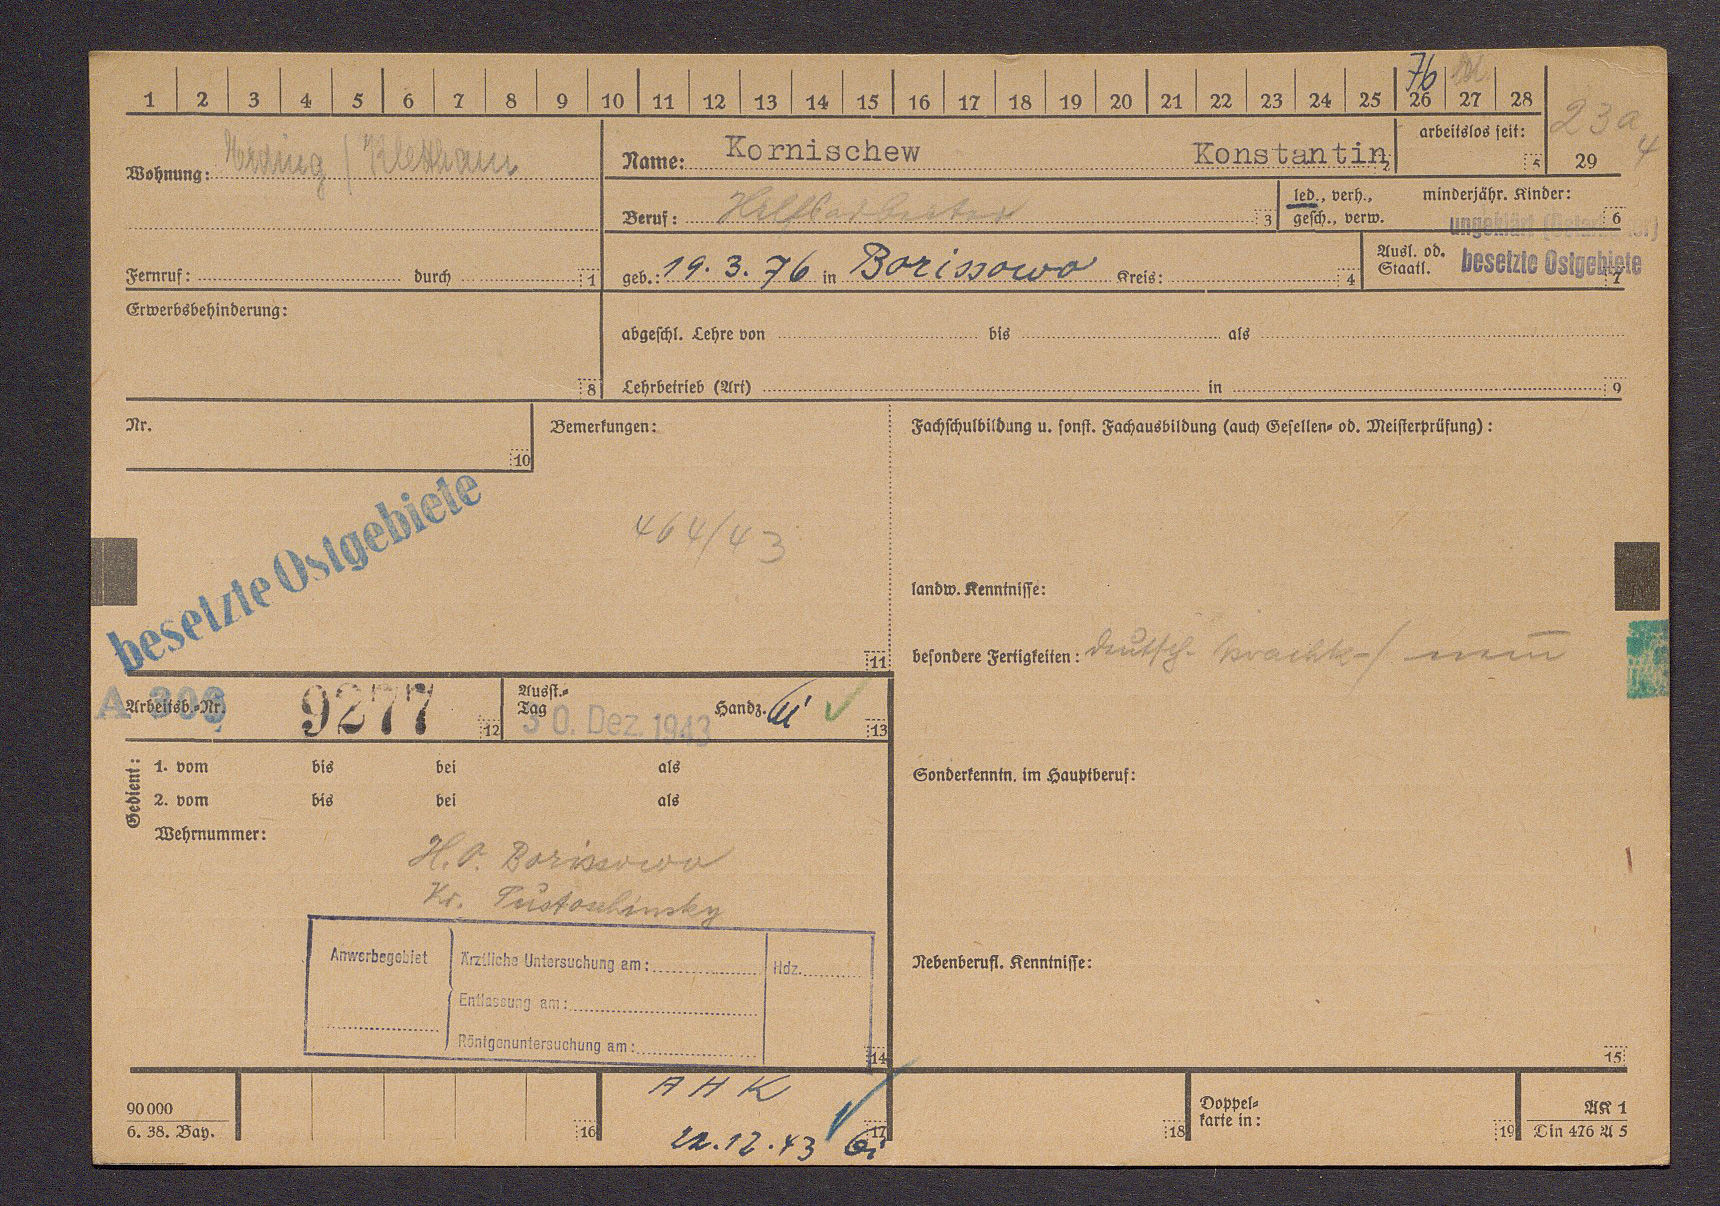 76
1 2 3 4 5 6 7 8 9 10 11 12 13 14 15 16 17 18 19 20 21 22 23 24 25 26 27 28
23a
4
29
Wohnung: Erding / Klettham
Name: Kornischew Konstantin 2
arbeitslos seit: 5
Beruf: Hilfsarbeiter 3
led., verh., gesch., verw.
minderjähr. Kinder: 6
ungeklärt (Ostarbeiter)
Fernruf: durch 1
geb.: 19.3.76 in Borissowo Kreis: 4
Ausl. od. Staatl. besetzte Ostgebiete 7
Erwerbsbehinderung: 8
abgeschl. Lehre von bis als
Lehrbetrieb (Art) in 9
Nr. 10
Bemerkungen:
Fachschulbildung u. sonst. Fachausbildung (auch Gesellen- od. Meisterprüfung):
besetzte Ostgebiete
464/43
11
landw. Kenntnisse:
besondere Fertigkeiten: deutsch- sprachk-/ nein
A 309
Arbeitsb.-Nr. 9277 12
Ausst.-Tag 30. Dez. 1943 Handz. 13
Gedient:
1. vom bis bei als
2. vom bis bei als
Wehrnummer:
Sonderkenntn. im Hauptberuf:
H.O. Borissowo
Kr. Pustoschinsky
Anwerbegebiet
Ärztliche Untersuchung am: Hdz.
Entlassung am:
Röntgenuntersuchung am:
14
Nebenberufl. Kenntnisse:
15
90 000
6. 38. Bay.
16
A H K
22.12.43
17
18
Doppelkarte in:
19
AK 1
Din 476 A 5